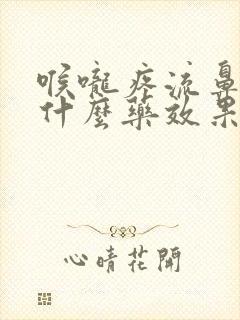 喉嚨疼流鼻
什麼藥效果
心晴花開